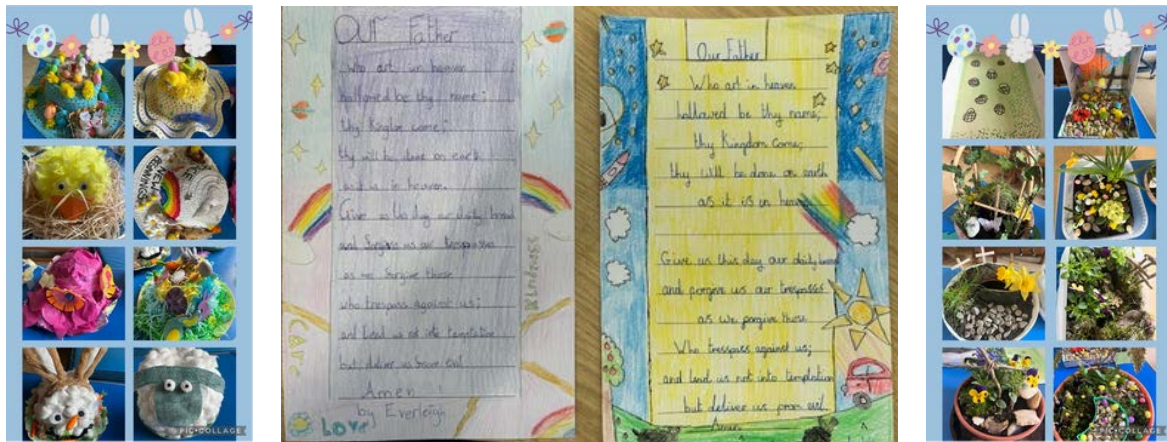 Our Father
who art in heaven
hallowed be thy name;
thy
come;
thy will be done on earth
as it is in heaven.
Give us
day our daily bread
and forgive us our trespasses
as we forgive those
who trespass against us;
and lead us not into temptation
but deliver us from evil
Amen
by Everleigh
Love
Care
Kindness
Our Father
Who art in heaven
hallowed be thy name;
thy Kingdom come;
thy will be done on earth
as it is in heaven
Give us this day our daily bread
and forgive us our trespasses
as we forgive those
Who tresspass against us;
and lead us not into temptation
but deliver us from evil
Amen
PIC•COLLAGE
PIC•COLLAGE